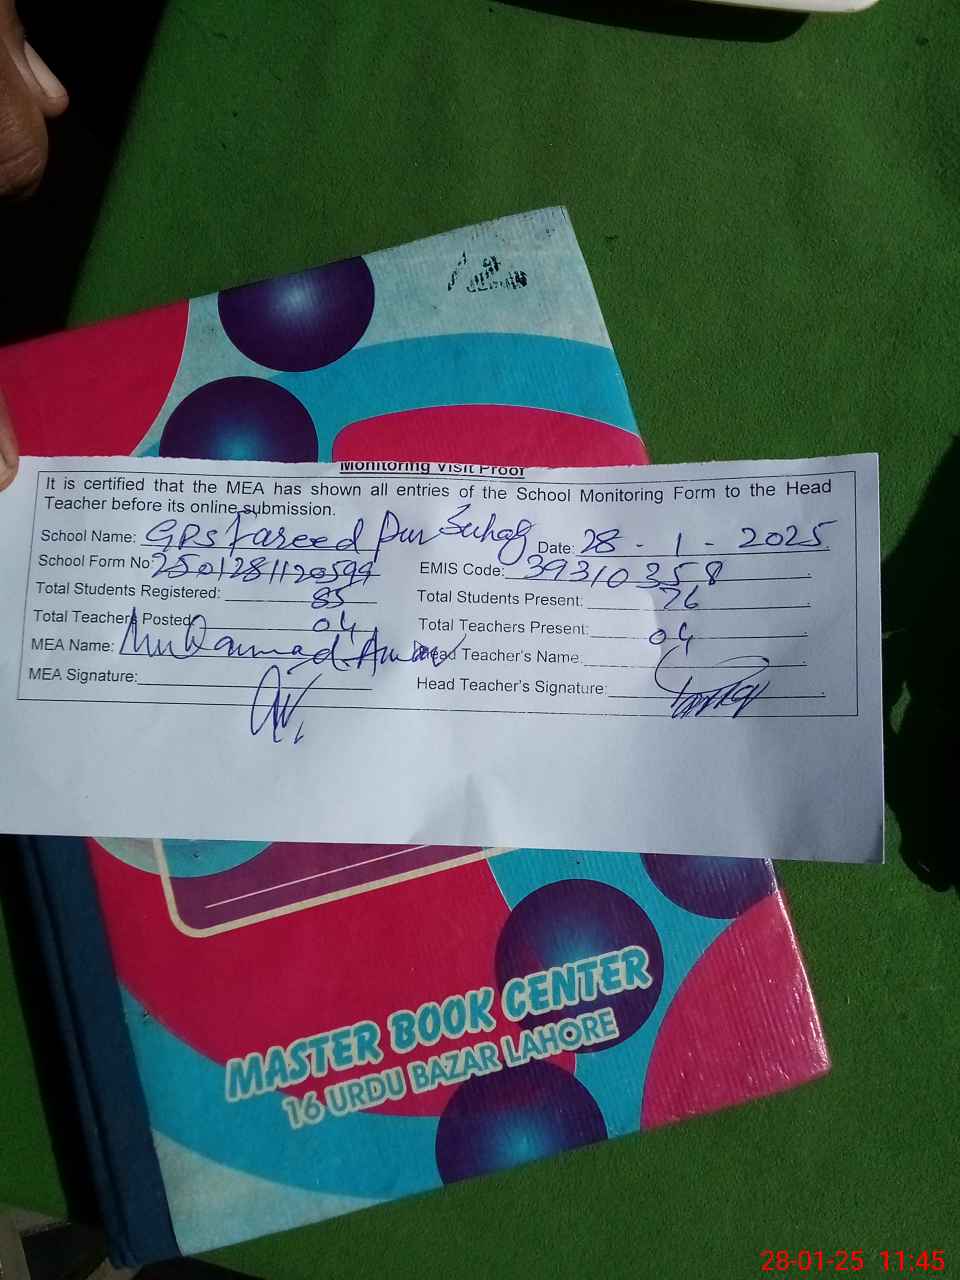 Monitoring Visit Proof
It is certified that the MEA has shown all entries of the School Monitoring Form to the Head
Teacher before its online submission.
School Name: GPS Fareed Pur Suhag Date: 28 - 1 - 2025
School Form No: 250128112 EMIS Code: 39310358
Total Students Registered: 85 Total Students Present: 76
Total Teachers Posted: 04 Total Teachers Present: 04
MEA Name: Muhammad Head Teacher's Name:
MEA Signature: Head Teacher's Signature:
MASTER BOOK CENTER
16 URDU BAZAR LAHORE
28-01-25 11:45